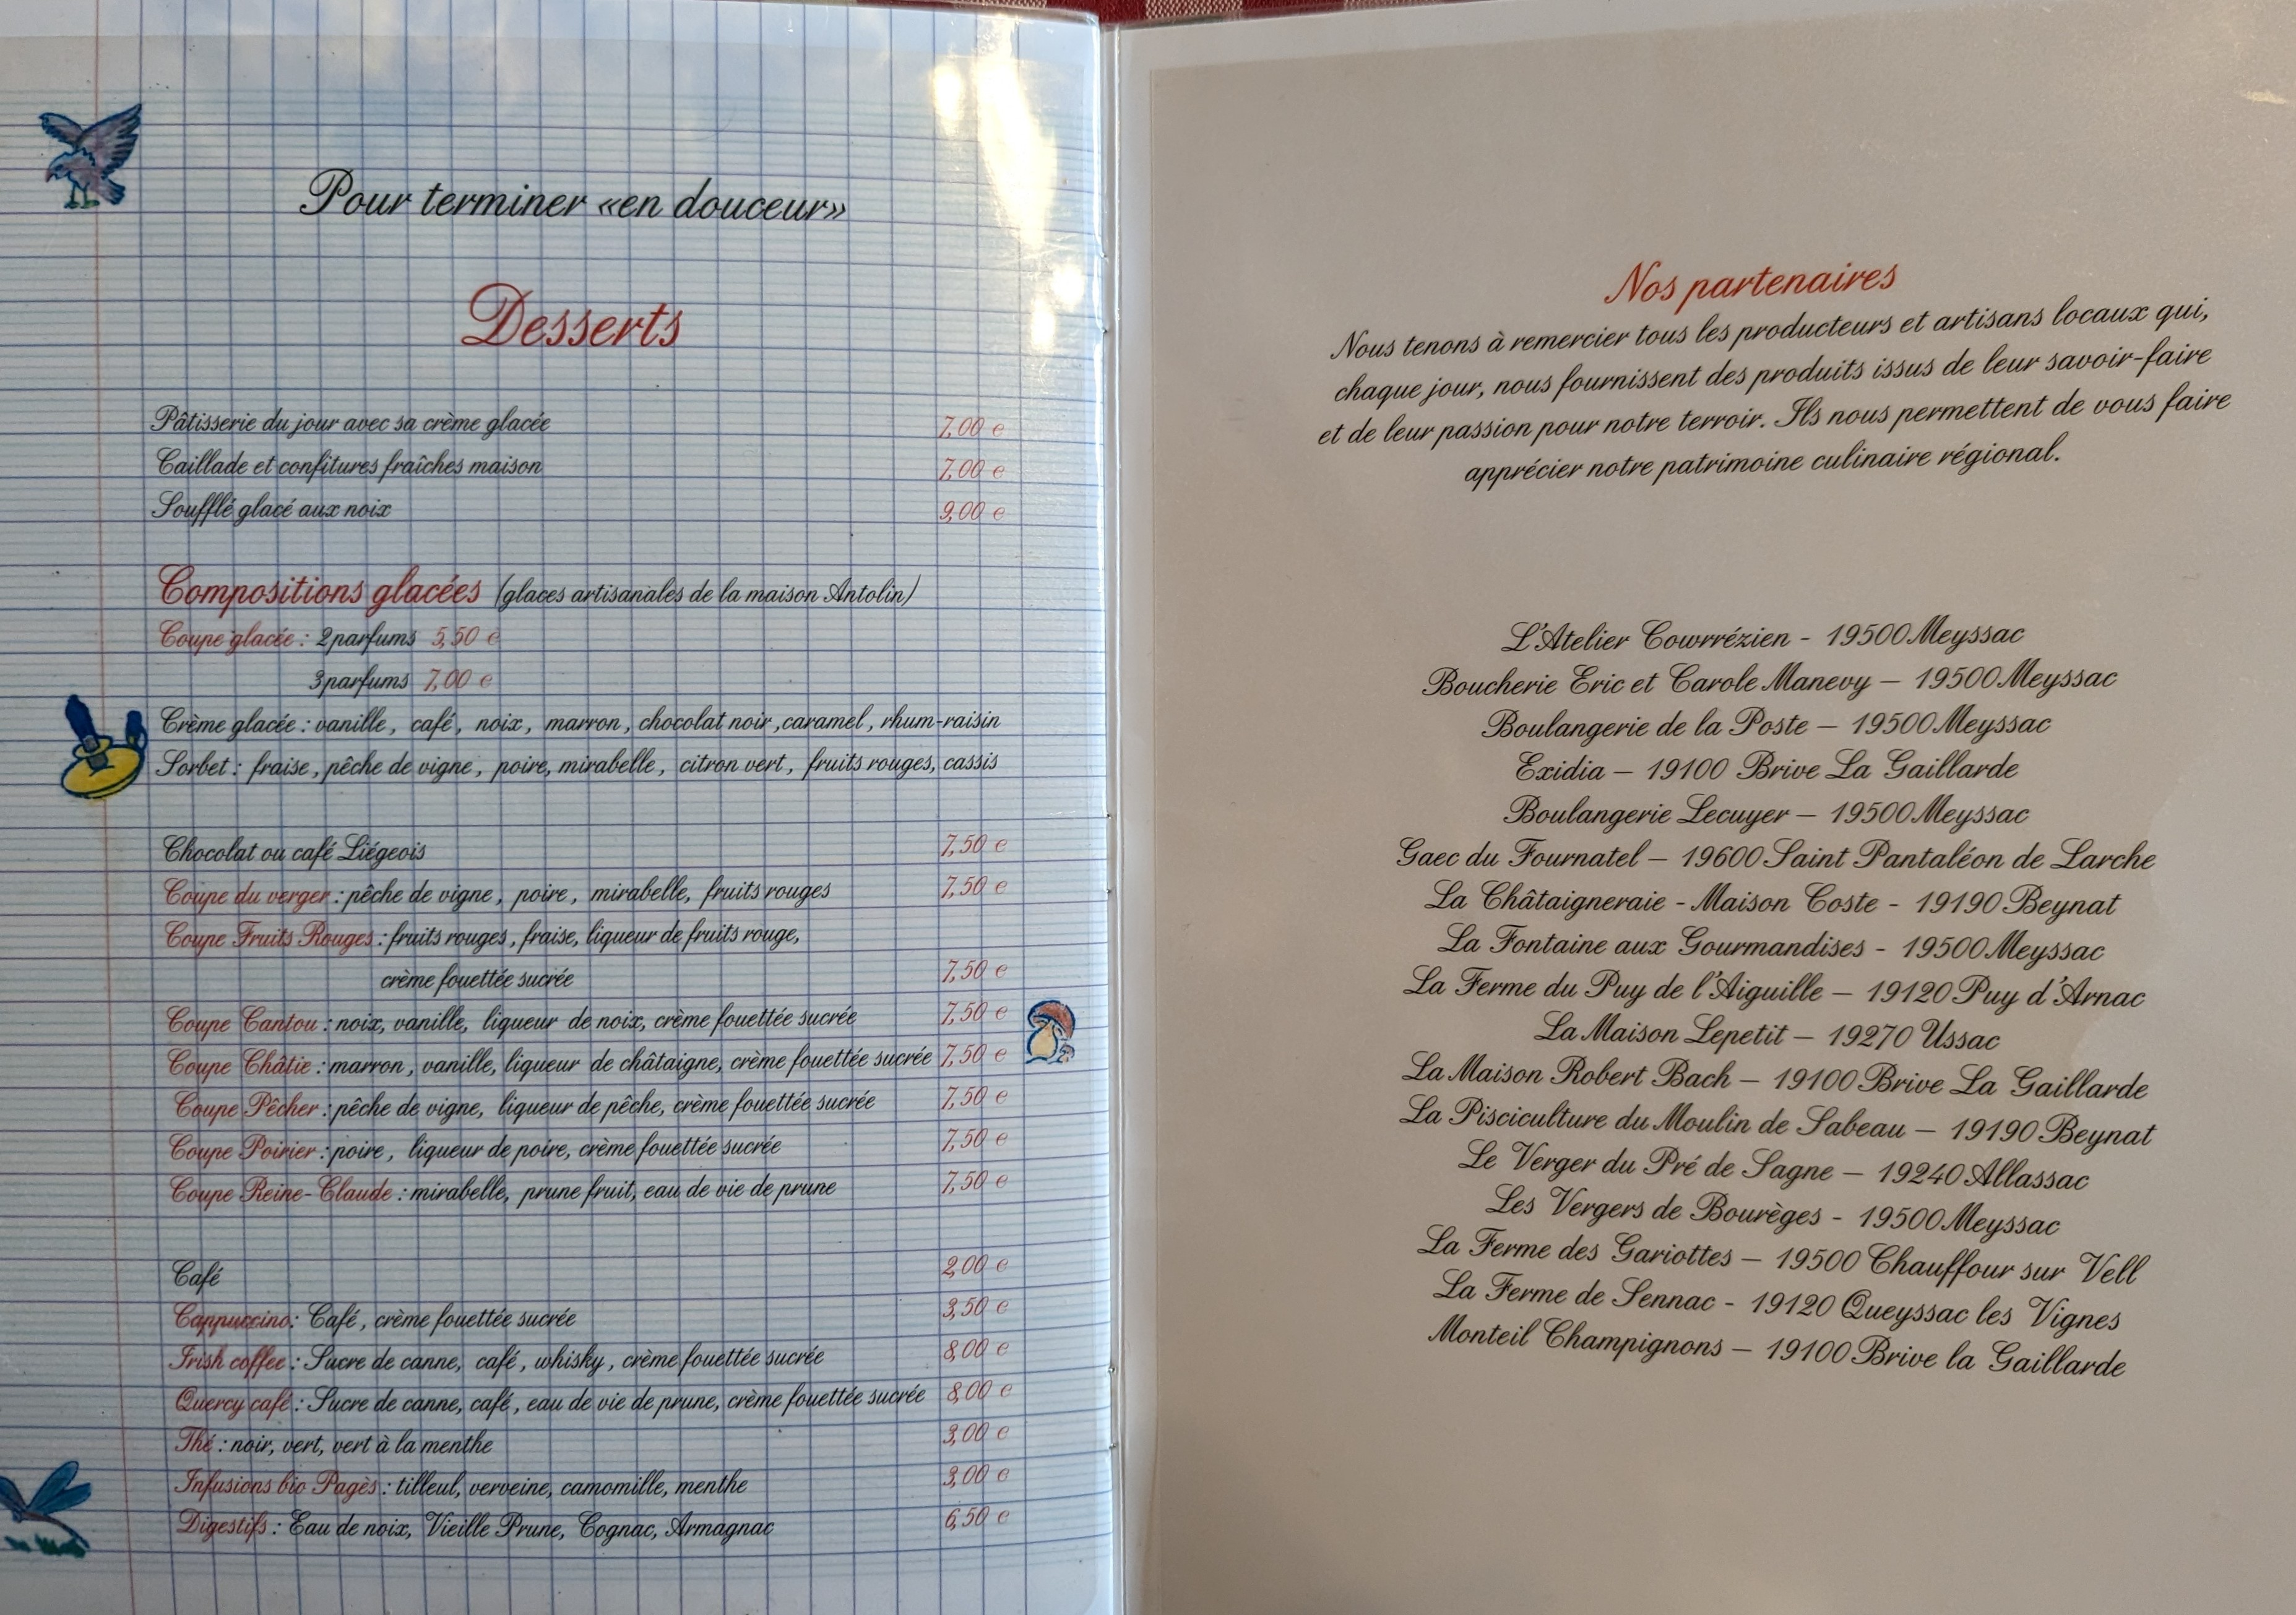 Pour terminer «en douceur»
Desserts
Pâtisserie du jour avec sa crème glacée 7,00 €
Caillade et confitures fraîches maison 7,00 €
Soufflé glacé aux noix 9,00 €
Compositions glacées (glaces artisanales de la maison Antolin)
Coupe glacée : 2 parfums 5,50 €
3 parfums 7,00 €
Crème glacée : vanille, café, noix, marron, chocolat noir, caramel, rhum-raisin
Sorbet : fraise, pêche de vigne, poire, mirabelle, citron vert, fruits rouges, cassis
Chocolat ou café Liégeois 7,50 €
Coupe du verger : pêche de vigne, poire, mirabelle, fruits rouges 7,50 €
Coupe Fruits Rouges : fruits rouges, fraise, liqueur de fruits rouge,
crème fouettée sucrée 7,50 €
Coupe Cantou : noix, vanille, liqueur de noix, crème fouettée sucrée 7,50 €
Coupe Châtie : marron, vanille, liqueur de châtaigne, crème fouettée sucrée 7,50 €
Coupe Pêcher : pêche de vigne, liqueur de pêche, crème fouettée sucrée 7,50 €
Coupe Poirier : poire, liqueur de poire, crème fouettée sucrée 7,50 €
Coupe Reine-Claude : mirabelle, prune fruit, eau de vie de prune 7,50 €
Café 2,00 €
Cappuccino : Café, crème fouettée sucrée 3,50 €
Irish coffee : Sucre de canne, café, whisky, crème fouettée sucrée 8,00 €
Quercy café : Sucre de canne, café, eau de vie de prune, crème fouettée sucrée 8,00 €
Thé : noir, vert, vert à la menthe 3,00 €
Infusions bio Pagès : tilleul, verveine, camomille, menthe 3,00 €
Digestifs : Eau de noix, Vieille Prune, Cognac, Armagnac 6,50 €
Nos partenaires
Nous tenons à remercier tous les producteurs et artisans locaux qui,
chaque jour, nous fournissent des produits issus de leur savoir-faire
et de leur passion pour notre terroir. Ils nous permettent de vous faire
apprécier notre patrimoine culinaire régional.
L'Atelier Cowrrézien - 19500 Meyssac
Boucherie Eric et Carole Manevy – 19500 Meyssac
Boulangerie de la Poste – 19500 Meyssac
Exidia – 19100 Brive La Gaillarde
Boulangerie Lecuyer – 19500 Meyssac
Gaec du Fournatel – 19600 Saint Pantaléon de Larche
La Châtaigneraie - Maison Coste - 19190 Beynat
La Fontaine aux Gourmandises - 19500 Meyssac
La Ferme du Puy de l'Aiguille – 19120 Puy d'Arnac
La Maison Lepetit – 19270 Ussac
La Maison Robert Bach – 19100 Brive La Gaillarde
La Pisciculture du Moulin de Sabeau – 19190 Beynat
Le Verger du Pré de Sagne – 19240 Allassac
Les Vergers de Bourèges - 19500 Meyssac
La Ferme des Gariottes – 19500 Chauffour sur Vell
La Ferme de Sennac - 19120 Queyssac les Vignes
Monteil Champignons – 19100 Brive la Gaillarde